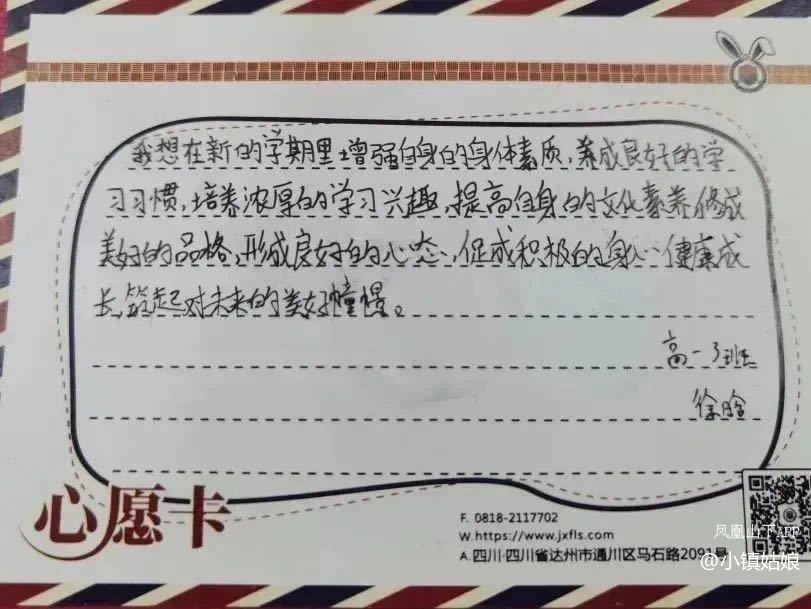 我想在新的学期里增强自身的身体素质,养成良好的学
习习惯,培养浓厚的学习兴趣,提高自身的文化素养修成
美好的品格,形成良好的心态,促成积极的身心健康成
长,筑起对未来的美好憧憬。
高一3班
徐晗
心愿卡
F. 0818-2117702
W.https://www.jxfls.com
A.四川·四川省达州市通川区马石路2091号
凤凰山下APP
@小镇姑娘